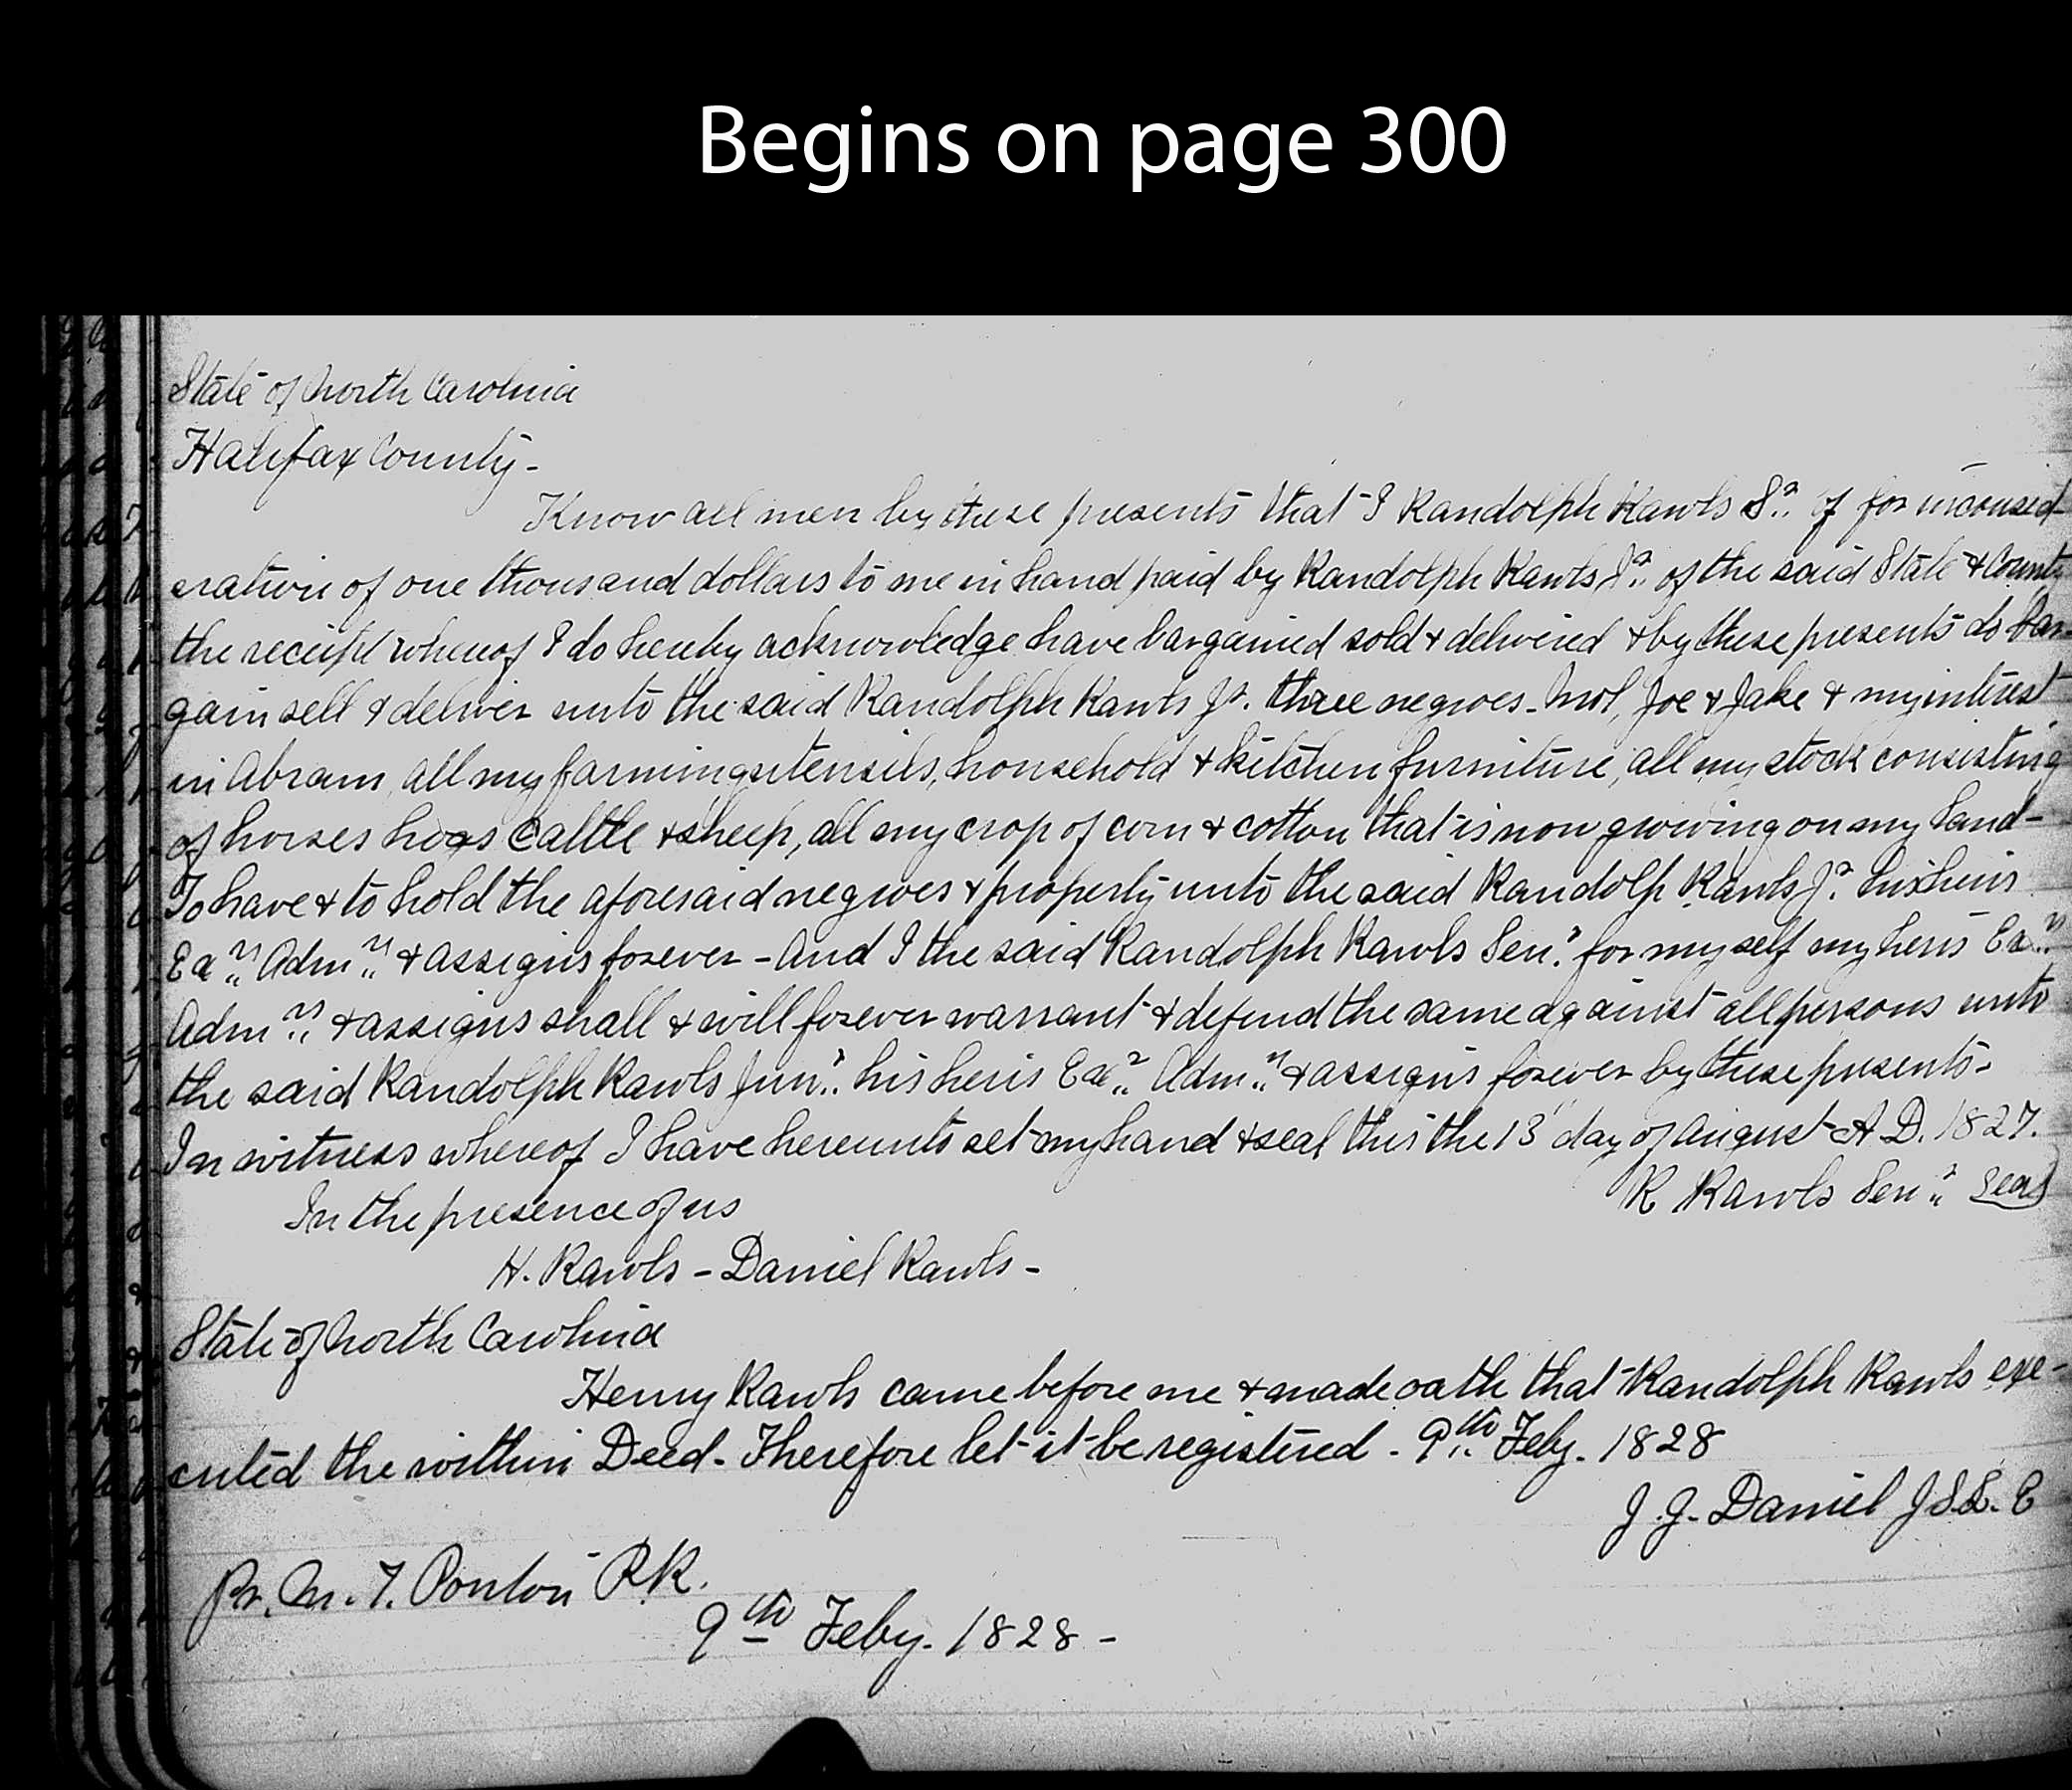 Begins on page 300
State of North Carolina
Halifax County -
Know all men by these presents that I Randolph Rawls Sr. of for inconsid-
eration of one thousand dollars to me in hand paid by Randolph Rawls Jr. of the said State & County
the receipt whereof I do hereby acknowledge have bargained sold & delivered & by these presents do bar-
gain sell & deliver unto the said Randolph Rawls Jr. three negroes - Mol, Joe & Jake & my interest
in Abram, all my farming utensils, household & kitchen furniture, all my stock consisting
of horses hogs cattle & sheep, all my crop of corn & cotton that is now growing on my land -
To have & to hold the aforesaid negroes & property unto the said Randolph Rawls Jr. his heirs
Exrs. Admrs. & assigns forever - And I the said Randolph Rawls Senr. for myself my heirs Exrs.
Admrs. & assigns shall & will forever warrant & defend the same against all persons unto
the said Randolph Rawls Junr. his heirs Exr. Admrs. & assigns forever by these presents -
In witness whereof I have hereunto set my hand & seal this the 13" day of August A. D. 1827.
In the presence of us R Rawls Senr. Seal
H. Rawls - Daniel Rawls -
State of North Carolina
Henry Rawls came before me & made oath that Randolph Rawls exe-
cuted the within Deed - Therefore let it be registered - 9th Feby. 1828
J. J. Daniel J S L. E
Pr. M. T. Ponton P.R.
9th Feby. 1828 -